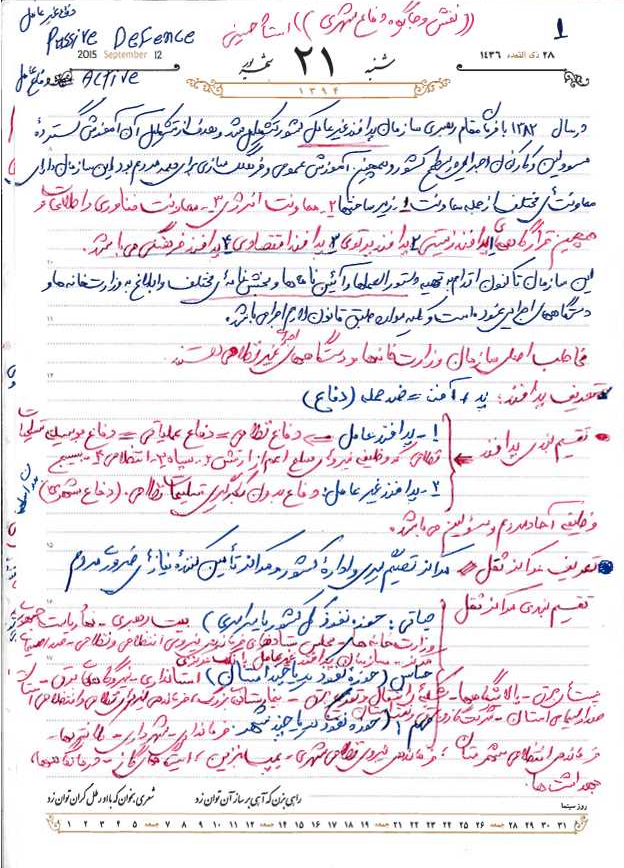 ((نقش و جایگاه دفاع شهری)) استاد حسینی
1
دفاع غیر عامل
Passive Defence
2015 September 12
۲۱ شهریور
شنبه
۲۸ ذی القعده ۱۴۳۶
دفاع عامل Active
۱۳۹۴
در سال ۱۳۸۲ با فرمان مقام رهبری سازمان پدافند غیر عامل کشور تشکیل شد و هدف از تشکیل آن آموزش گسترده
مسوولین و کارکنان اجرایی در سطح کشور و همچنین آموزش عمومی و فرهنگ سازی برای همه مردم بود این سازمان دارای
معاونت های مختلف از جمله معاونت ۱. زیر ساختها ۲- معاونت انرژی ۳- معاونت فناوری و اطلاعات و
همچنین قرارگاههای ۱ پدافند زیستی ۲ پدافند پرتوی ۳ پدافند اقتصادی ۴ پدافند فرهنگی می باشد.
این سازمان تا کنون اقدام به تهیه دستورالعملها و آئین نامه ها و بخشنامه های مختلف و ابلاغ به وزارتخانه ها و
دستگاههای اجرایی نموده است و کلیه موارد طبق قانون لازم اجرا می باشد.
مخاطب اصلی سازمان وزارتخانه ها و دستگاههای اجرایی غیر نظامی هستند.
تعریف پدافند: پد + آفند = ضد حمله (دفاع)
تقسیم بندی پدافند
۱- پدافند عامل = دفاع نظامی = دفاع عملیاتی = دفاع بوسیله تسلیحات
نظامی که وظیفه نیروهای مسلح اعم از ارتش ۲. سپاه ۳. انتظامی ۴. بسیج
۲- پدافند غیر عامل: دفاع بدون بکارگیری تسلیحات نظامی. (دفاع شهری)
وظیفه آحاد مردم و مسئولین می باشد.
تعریف مراکز ثقل = مراکز تصمیم گیری و اداره کشور و مراکز تأمین کننده نیازهای ضروری مردم
تقسیم بندی مراکز ثقل
حیاتی: حوزه نفوذ کل کشور یا سراسری) بیت رهبری - نهاد ریاست جمهوری
وزارتخانه ها - مجلس - ستادهای فرماندهی نیروهای انتظامی و نظامی - صدا و سیما
مرکز - سازمان پدافند غیر عامل
حساس (حوزه نفوذ یک یا چند استان) استانداری - نیروگاههای برق -
پستهای برق - پالایشگاهها - بیمارستان بزرگ، فرماندهی نیروهای نظامی و انتظامی استان
صدا و سیمای استان -
مهم (حوزه نفوذ یک یا چند شهر) فرمانداری - شهرداری -
فرماندهی انتظامی شهرستان، فرماندهی نیروی نظامی شهری - پمپ بنزین، ایستگاههای گاز - درمانگاهها،
بهداشت ها.
راهی بزن که آهی بر ساز آن توان زد
شعری بخوان که با او رطل گران توان زد
روز سینما
۱ ۲ ۳ ۴ ۵ جمعه ۷ ۸ ۹ ۱۰ ۱۱ ۱۲ جمعه ۱۴ ۱۵ ۱۶ ۱۷ ۱۸ ۱۹ جمعه ۲۱ ۲۲ ۲۳ ۲۴ ۲۵ ۲۶ جمعه ۲۸ ۲۹ ۳۰ ۳۱